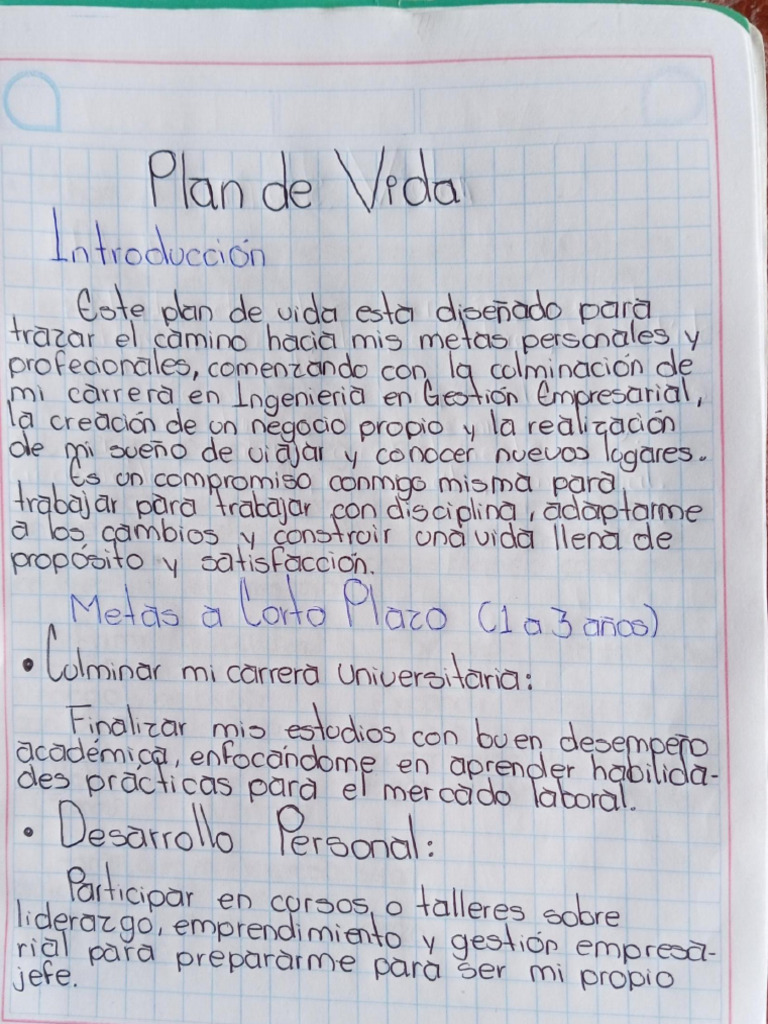 Plan de Vida
Introducción
Este plan de vida esta diseñado para
trazar el camino hacia mis metas personales y
profecionales, comenzando con la colminación de
mi carrera en Ingenieria en Gestión Empresarial,
la creación de un negocio propio y la realización
de mi sueño de viajar y conocer nuevos lugares.
Es un compromiso conmigo misma para
trabajar para trabajar con disciplina, adaptarme
a los cambios y construir una vida llena de
propósito y satisfacción.
Metas a Corto Plazo (1 a 3 años)
• Culminar mi carrera universitaria:
Finalizar mis estudios con buen desempeño
académica, enfocándome en aprender habilida-
des prácticas para el mercado laboral.
• Desarrollo Personal:
Participar en cursos o talleres sobre
liderazgo, emprendimiento y gestión empresa-
rial para prepararme para ser mi propio
jefe.